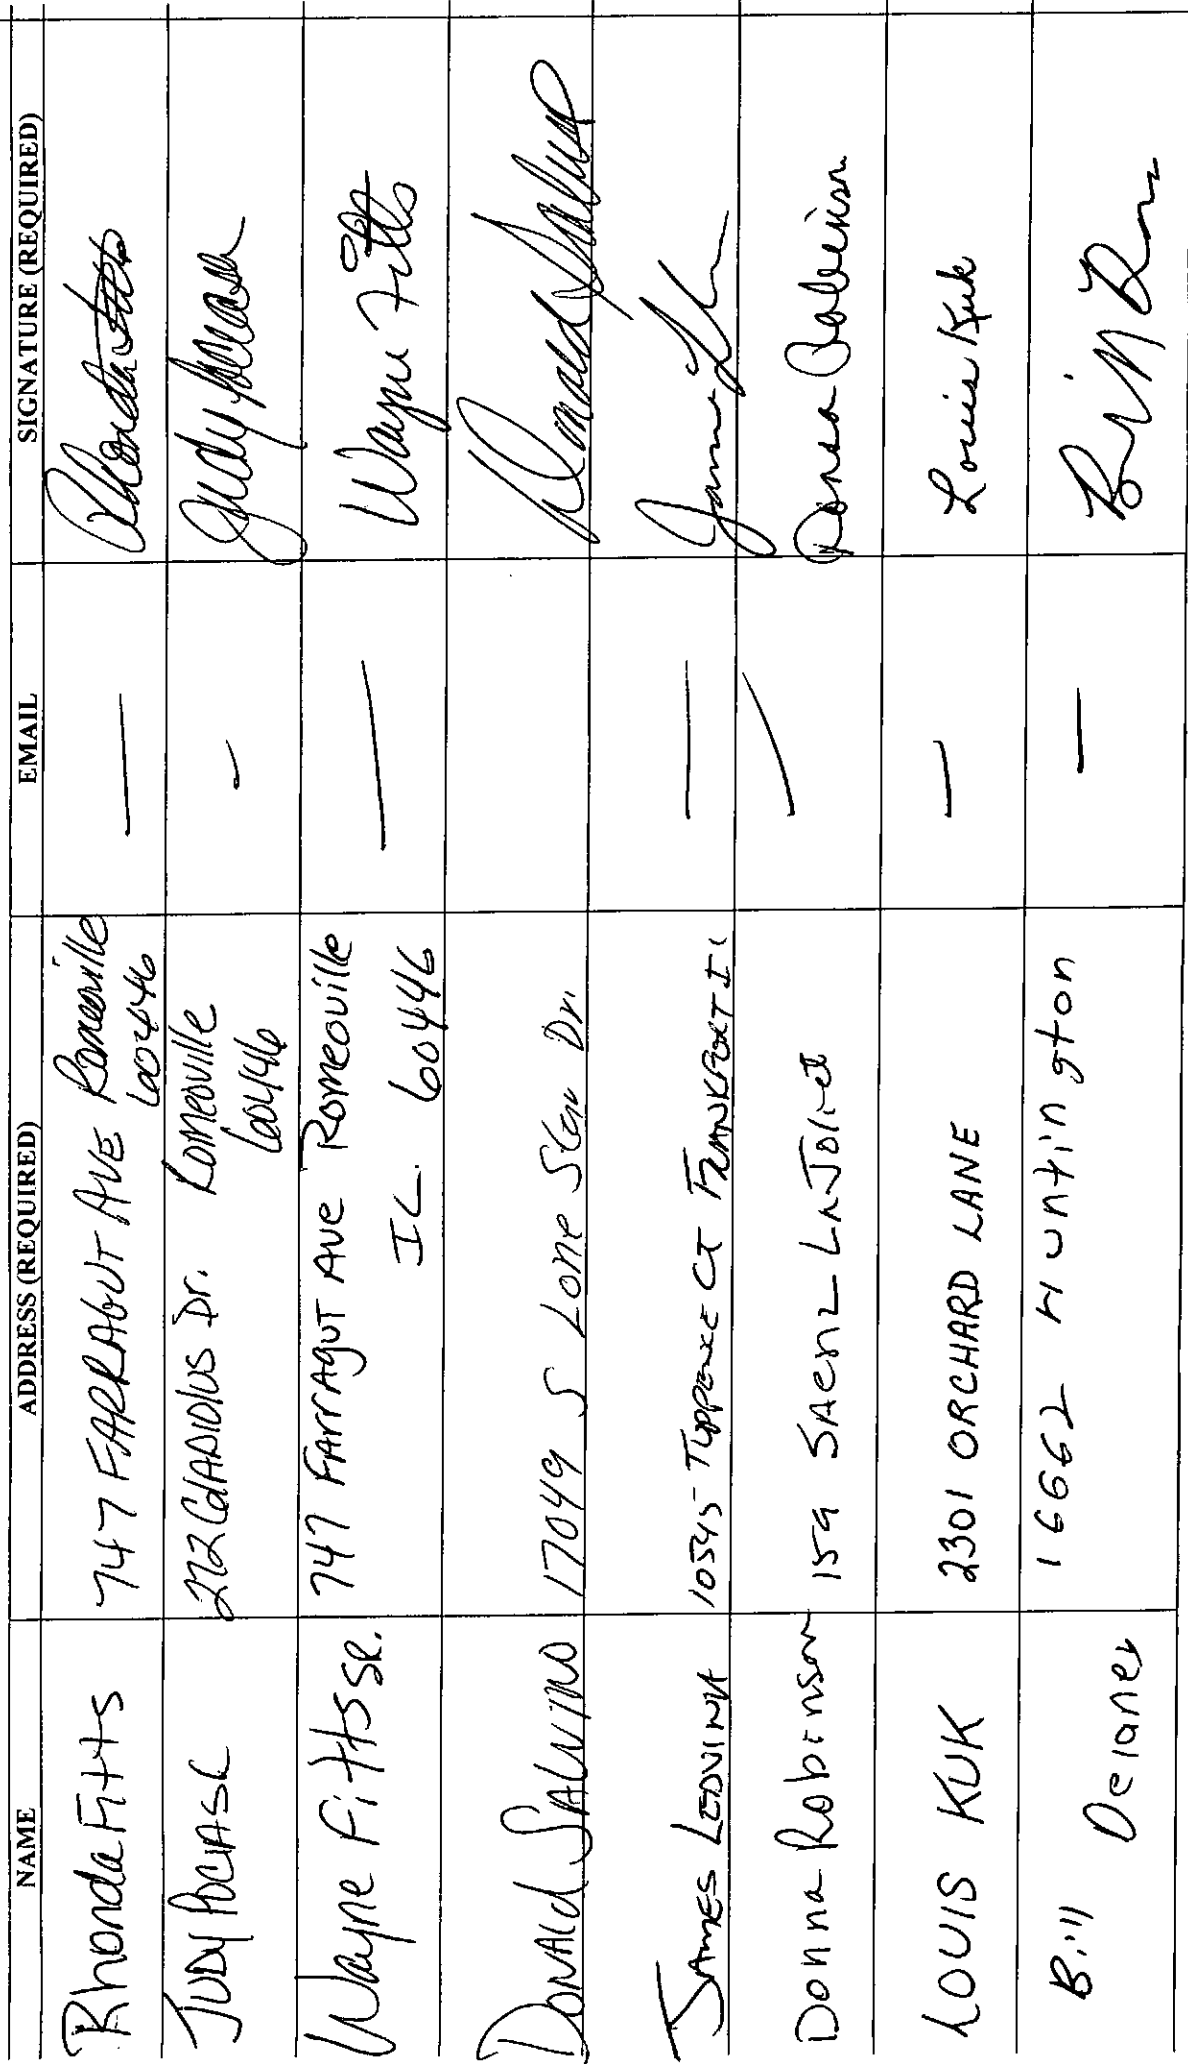 NAME ADDRESS (REQUIRED) EMAIL SIGNATURE (REQUIRED)
Rhonda Fitts 747 FARRAGUT AVE Romeoville — Rhonda Fitts
60446
JUDY POCIASK 272 GlADIOlUS Dr. Romeoville - Judy
60446
Wayne Fitts SR. 747 FArrAgUT AVe Romeoville — Wayne Fitts
IL 60446
DONAld SALVINO 17049 S Lone Star Dr. Donald Salvino
JAMES LEDVINA 10345 TUPPENCE CT FRANKFORT IL — James
Donna Robinson 159 SAenz Ln Joliet — Donna Robinson
LOUIS KUK 2301 ORCHARD LANE — Louis Kuk
Bill Delaney 16662 Huntington — Bill